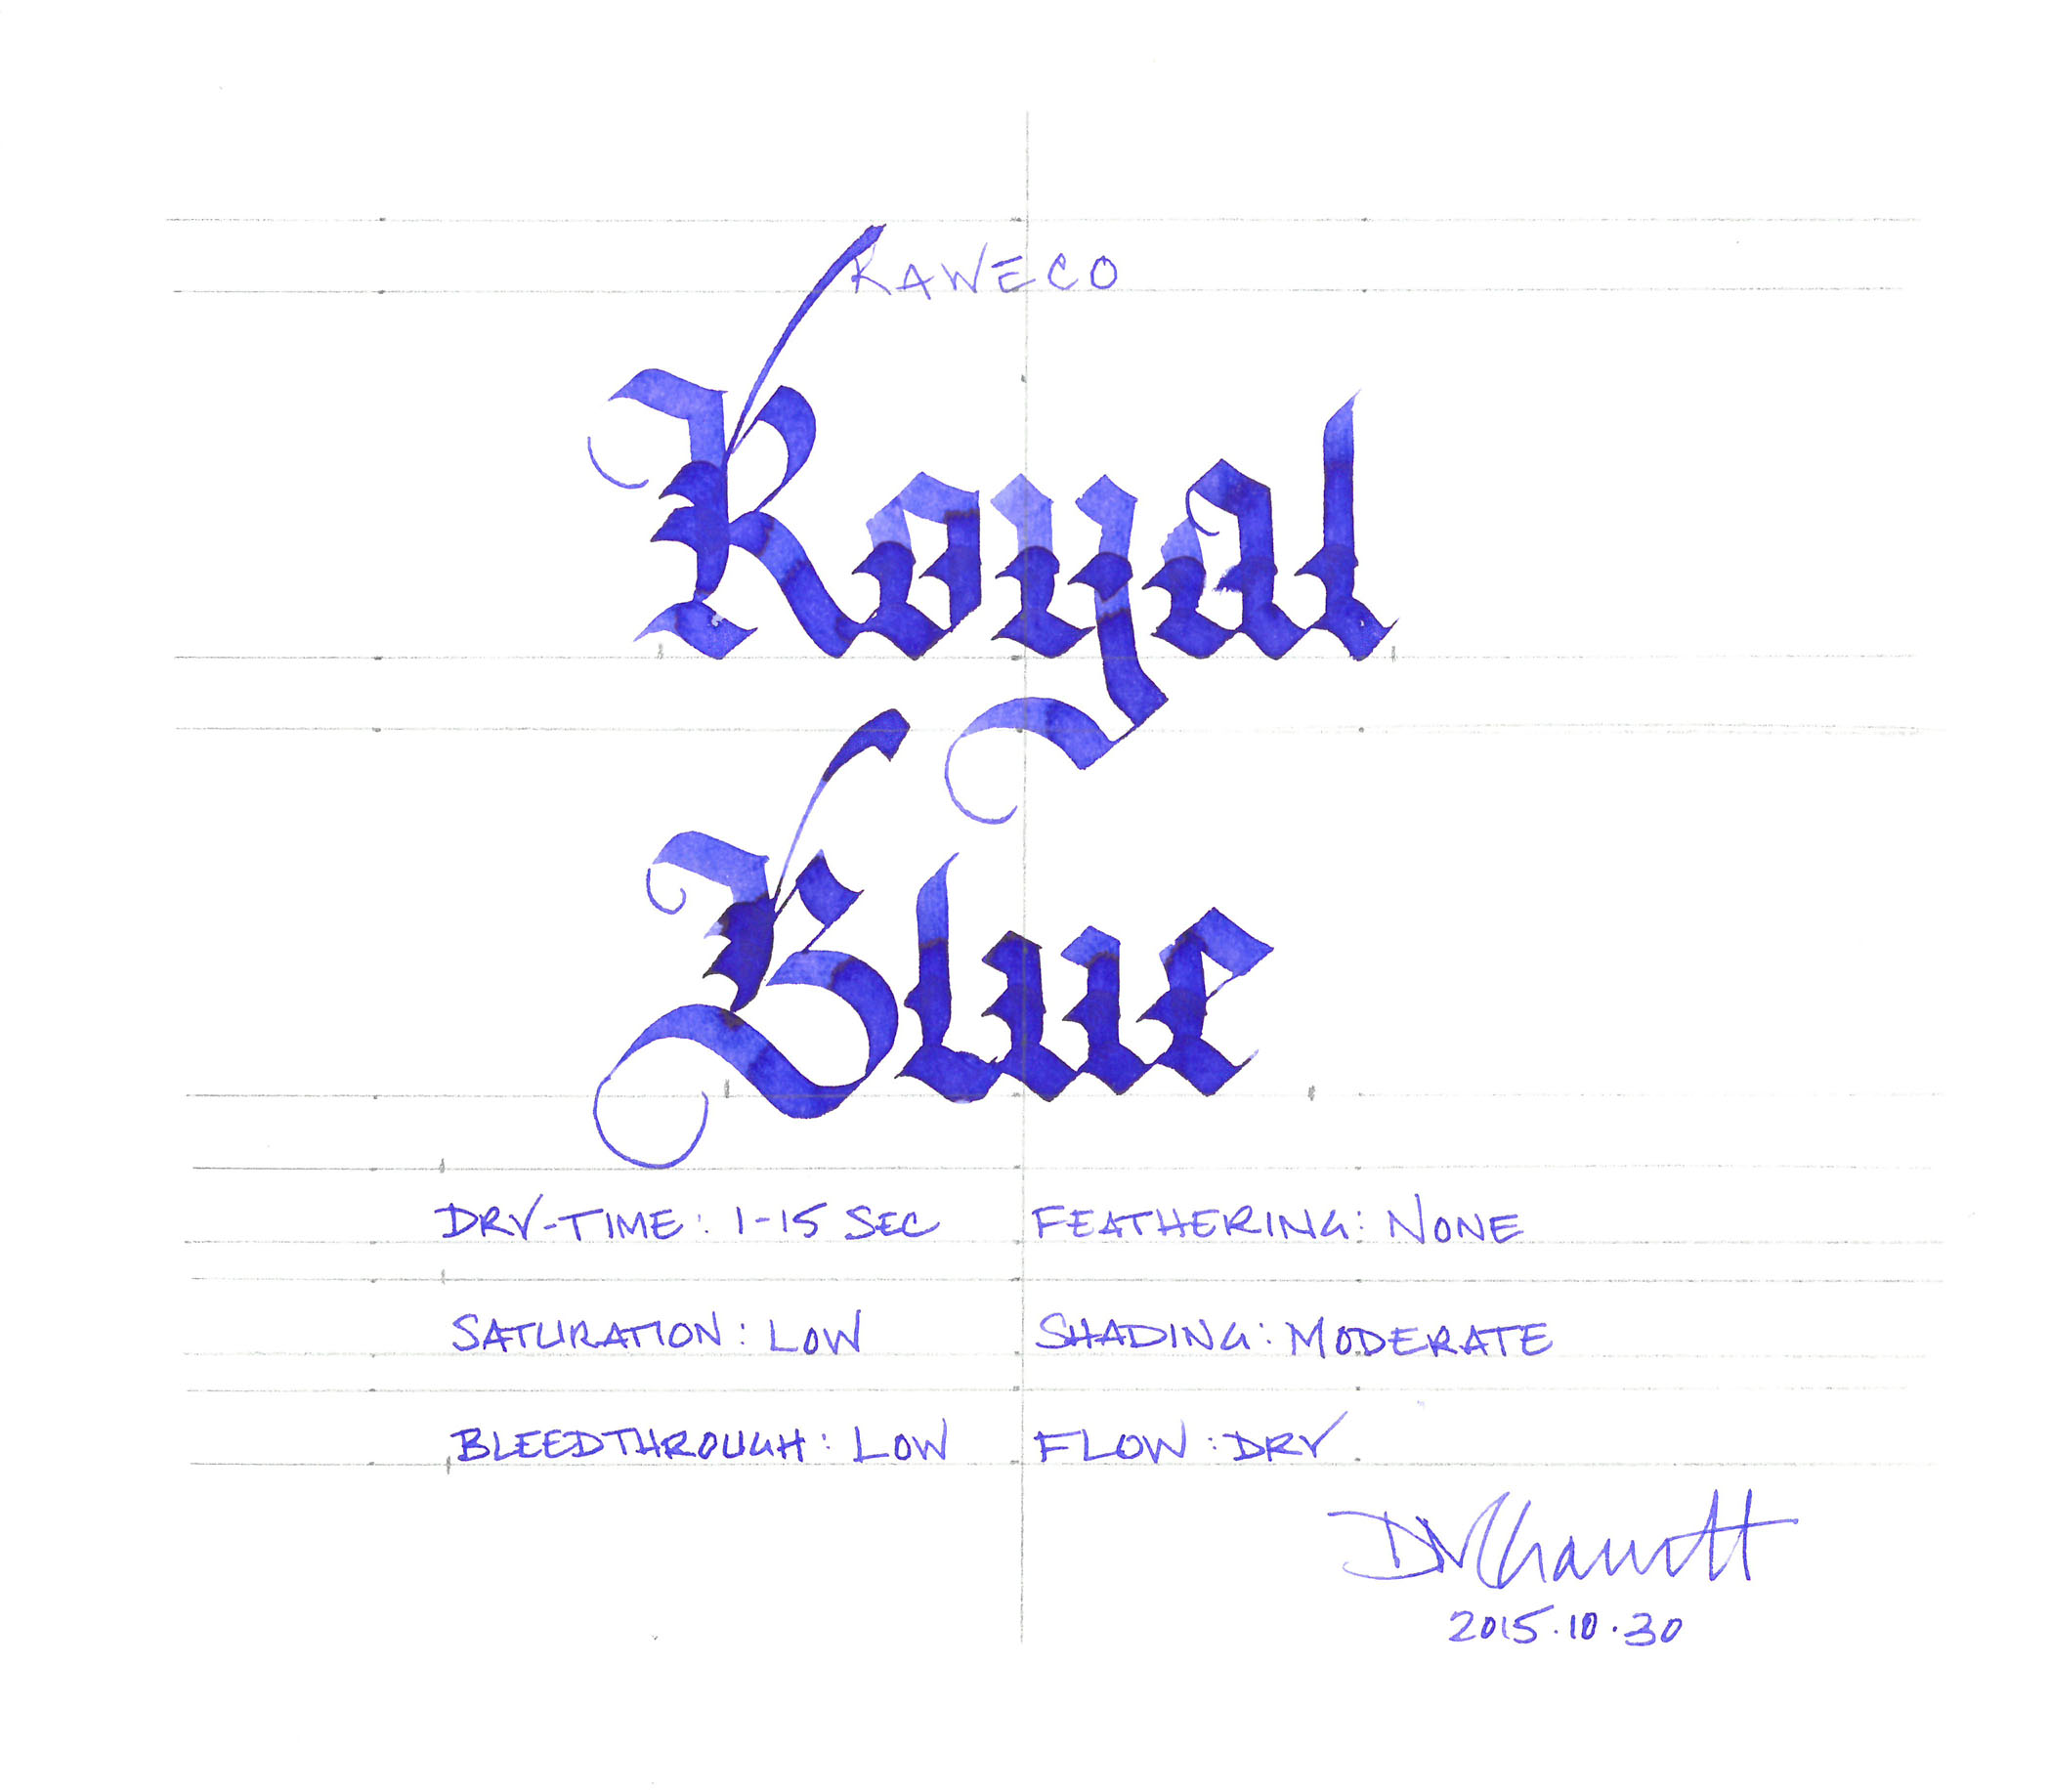 KAWECO
Royal
Blue
DRY-TIME: 1-15 SEC FEATHERING: NONE
SATURATION: LOW SHADING: MODERATE
BLEEDTHROUGH: LOW FLOW: DRY
2015.10.30